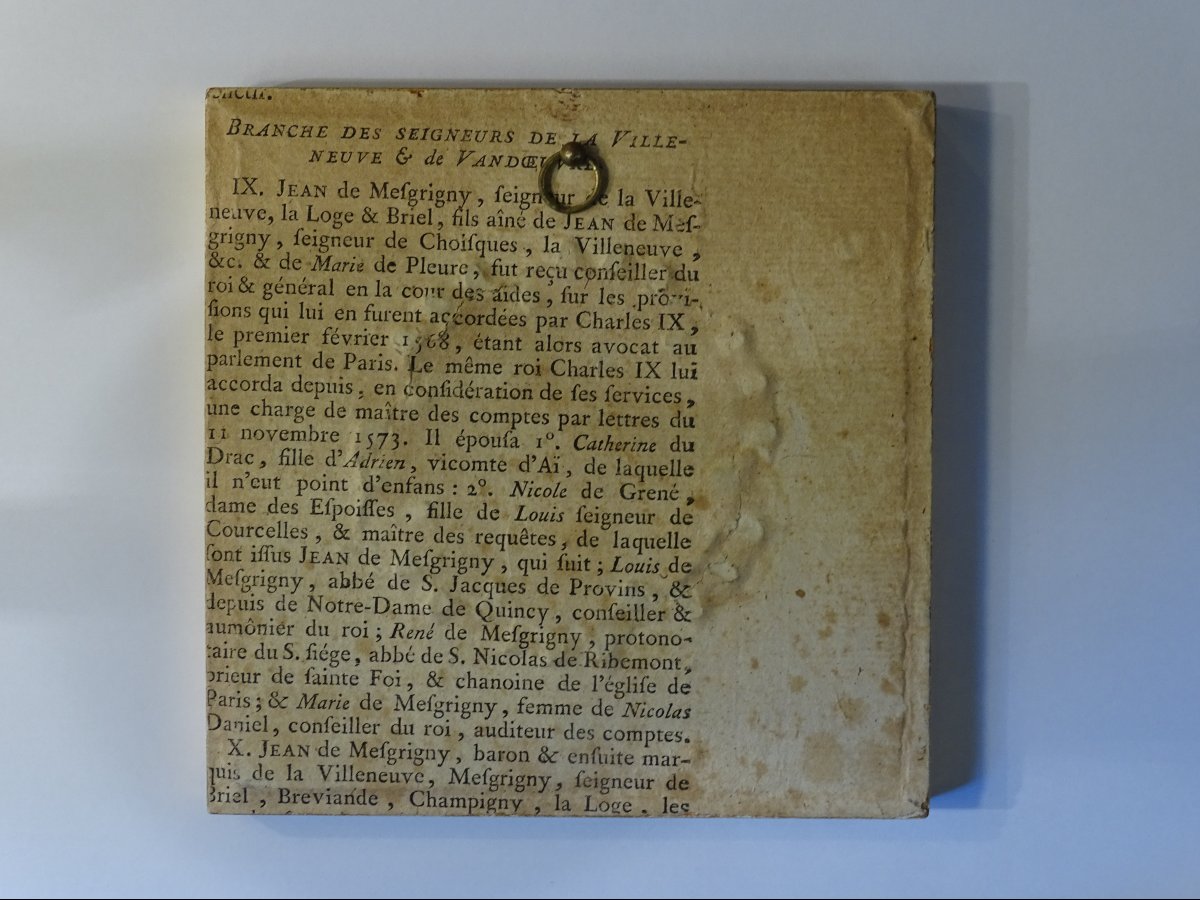 BRANCHE DES SEIGNEURS DE LA VILLE-
NEUVE & de VANDŒUVRE
IX. JEAN de Meſgrigny, ſeigneur de la Ville-
neuve, la Loge & Briel, fils aîné de JEAN de Meſ-
grigny, ſeigneur de Choiſques, la Villeneuve,
&c. & de Marie de Pleure, fut reçu conſeiller du
roi & général en la cour des aides, ſur les provi-
ſions qui lui en furent accordées par Charles IX,
le premier février 1568, étant alors avocat au
parlement de Paris. Le même roi Charles IX lui
accorda depuis, en conſidération de ſes ſervices,
une charge de maître des comptes par lettres du
11 novembre 1573. Il épouſa 1°. Catherine du
Drac, fille d'Adrien, vicomte d'Aï, de laquelle
il n'eut point d'enfans : 2°. Nicole de Grené,
dame des Eſpoiſſes, fille de Louis ſeigneur de
Courcelles, & maître des requêtes, de laquelle
ſont iſſus JEAN de Meſgrigny, qui ſuit ; Louis de
Meſgrigny, abbé de S. Jacques de Provins, &
depuis de Notre-Dame de Quincy, conſeiller &
aumônier du roi ; René de Meſgrigny, protono-
taire du S. ſiége, abbé de S. Nicolas de Ribemont,
prieur de ſainte Foi, & chanoine de l'égliſe de
Paris ; & Marie de Meſgrigny, femme de Nicolas
Daniel, conſeiller du roi, auditeur des comptes.
X. JEAN de Meſgrigny, baron & enſuite mar-
quis de la Villeneuve, Meſgrigny, ſeigneur de
Briel, Breviande, Champigny, la Loge, les